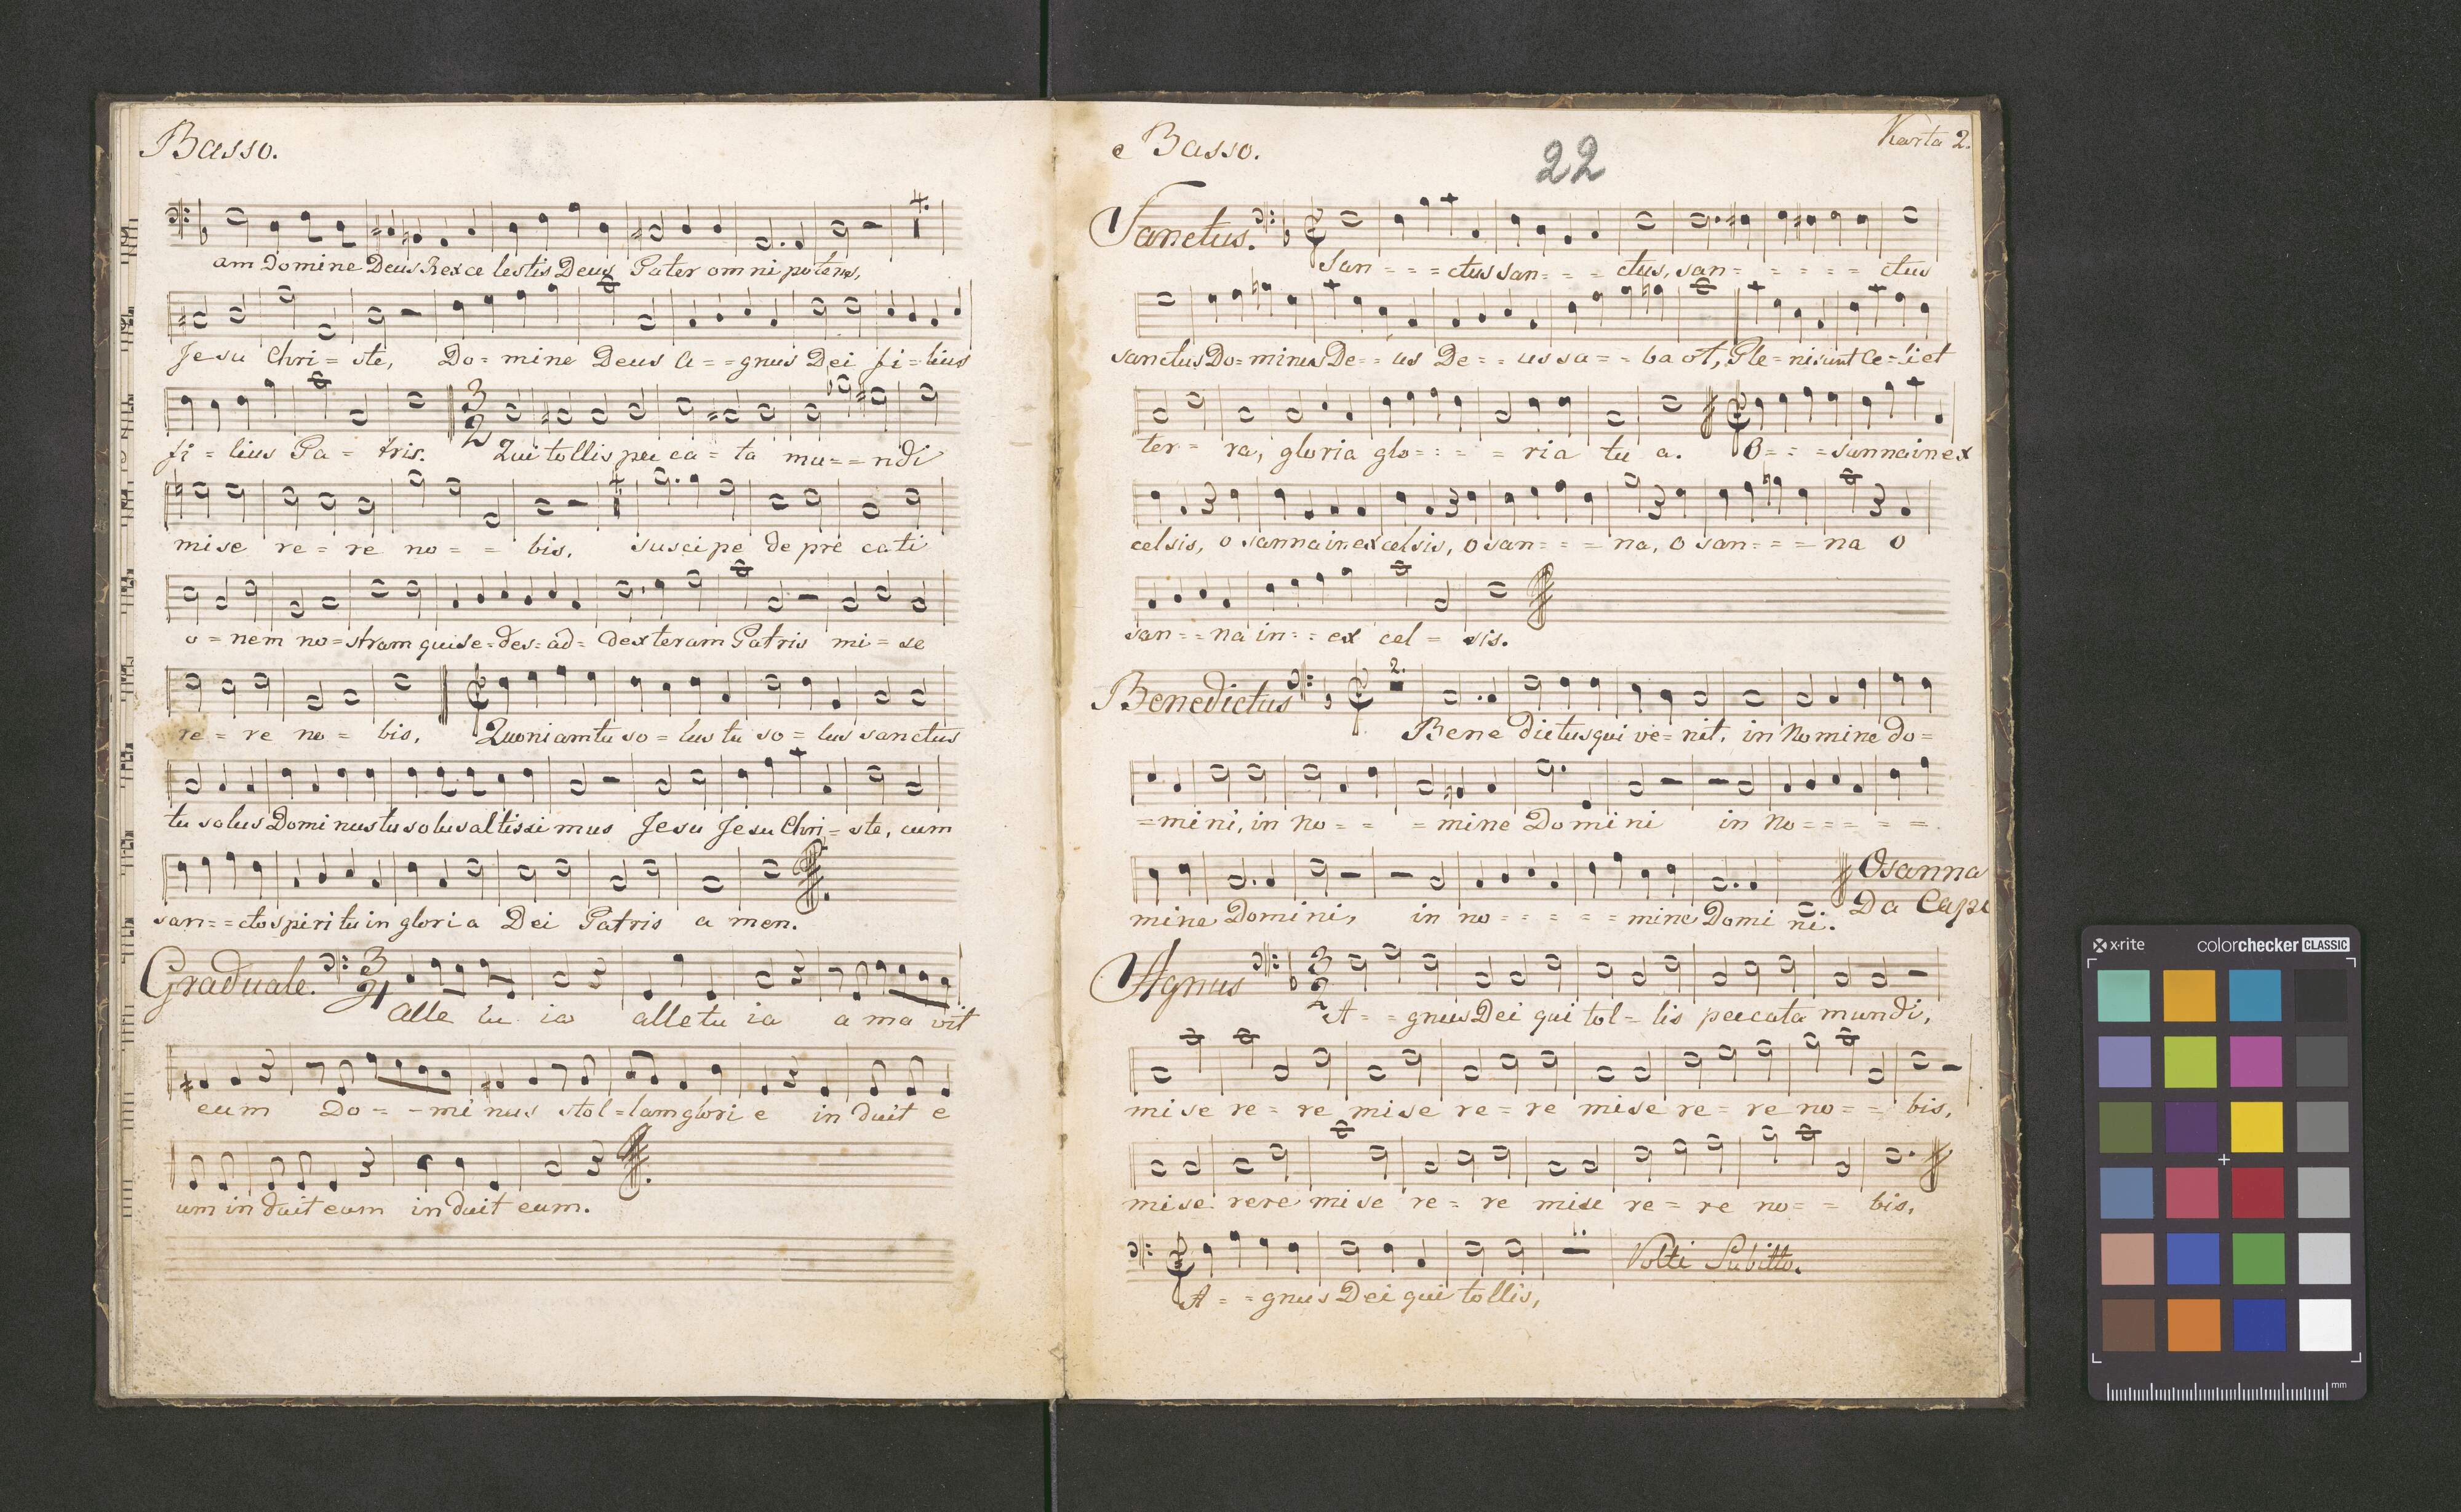 Basso.
am Domine Deus Rex ce lestis Deus Pater om ni potens,
Jesu Chri = ste, Do = mine Deus A = = gnus Dei fi = lius
fi = lius Pa = tris. Qui tollis pec ca = ta mu = = ndi
mise re = re no = = bis, suscipe de pre cati
o = nem no = stram qui se = des = ad = dexteram Patris mi = se
re = re no = bis, Quoniam tu so = lus tu so = lus sanctus
tu solus Domi nus tu solus altissi mus Jesu Jesu Chri = ste, cum
san = = cto spiri tu in glori a Dei Patris a men.
Graduale. 3/4
Alle lu ia alle lu ia a ma vit
eum Do = - mi nus stol = lam glori e in duit e
um in duit eum in duit eum.
e Basso.
22
Karta 2.
Sanctus.
San = = = ctus san = = = ctus, san = = = = = ctus
sanctus Do = minus De = = us De = = us sa = = ba ot, Ple = ni sunt Ce = li et
ter = ra, gloria glo = = = = ria tu a. O = = = sanna in ex
celsis, o sanna in excelsis, o san = = = na, o san = = = na o
san = = na in = = ex cel = sis.
Benedictus
2.
Bene dictus qui ve = nit, in No mine do =
= mi ni, in no = = = mine Domi ni in No = = = = =
mine Domini, in no = = = = = mine Domi ni.
Osanna
Da Capo
Agnus 3/2
A = = gnus Dei qui tol = lis peccata mundi,
mise re = re mise re = re mise re = re no = = bis,
mise rere mi se re = re mise re = re no = = bis,
Volti Subitto.
A = = gnus Dei qui tollis,
x-rite colorchecker CLASSIC
mm